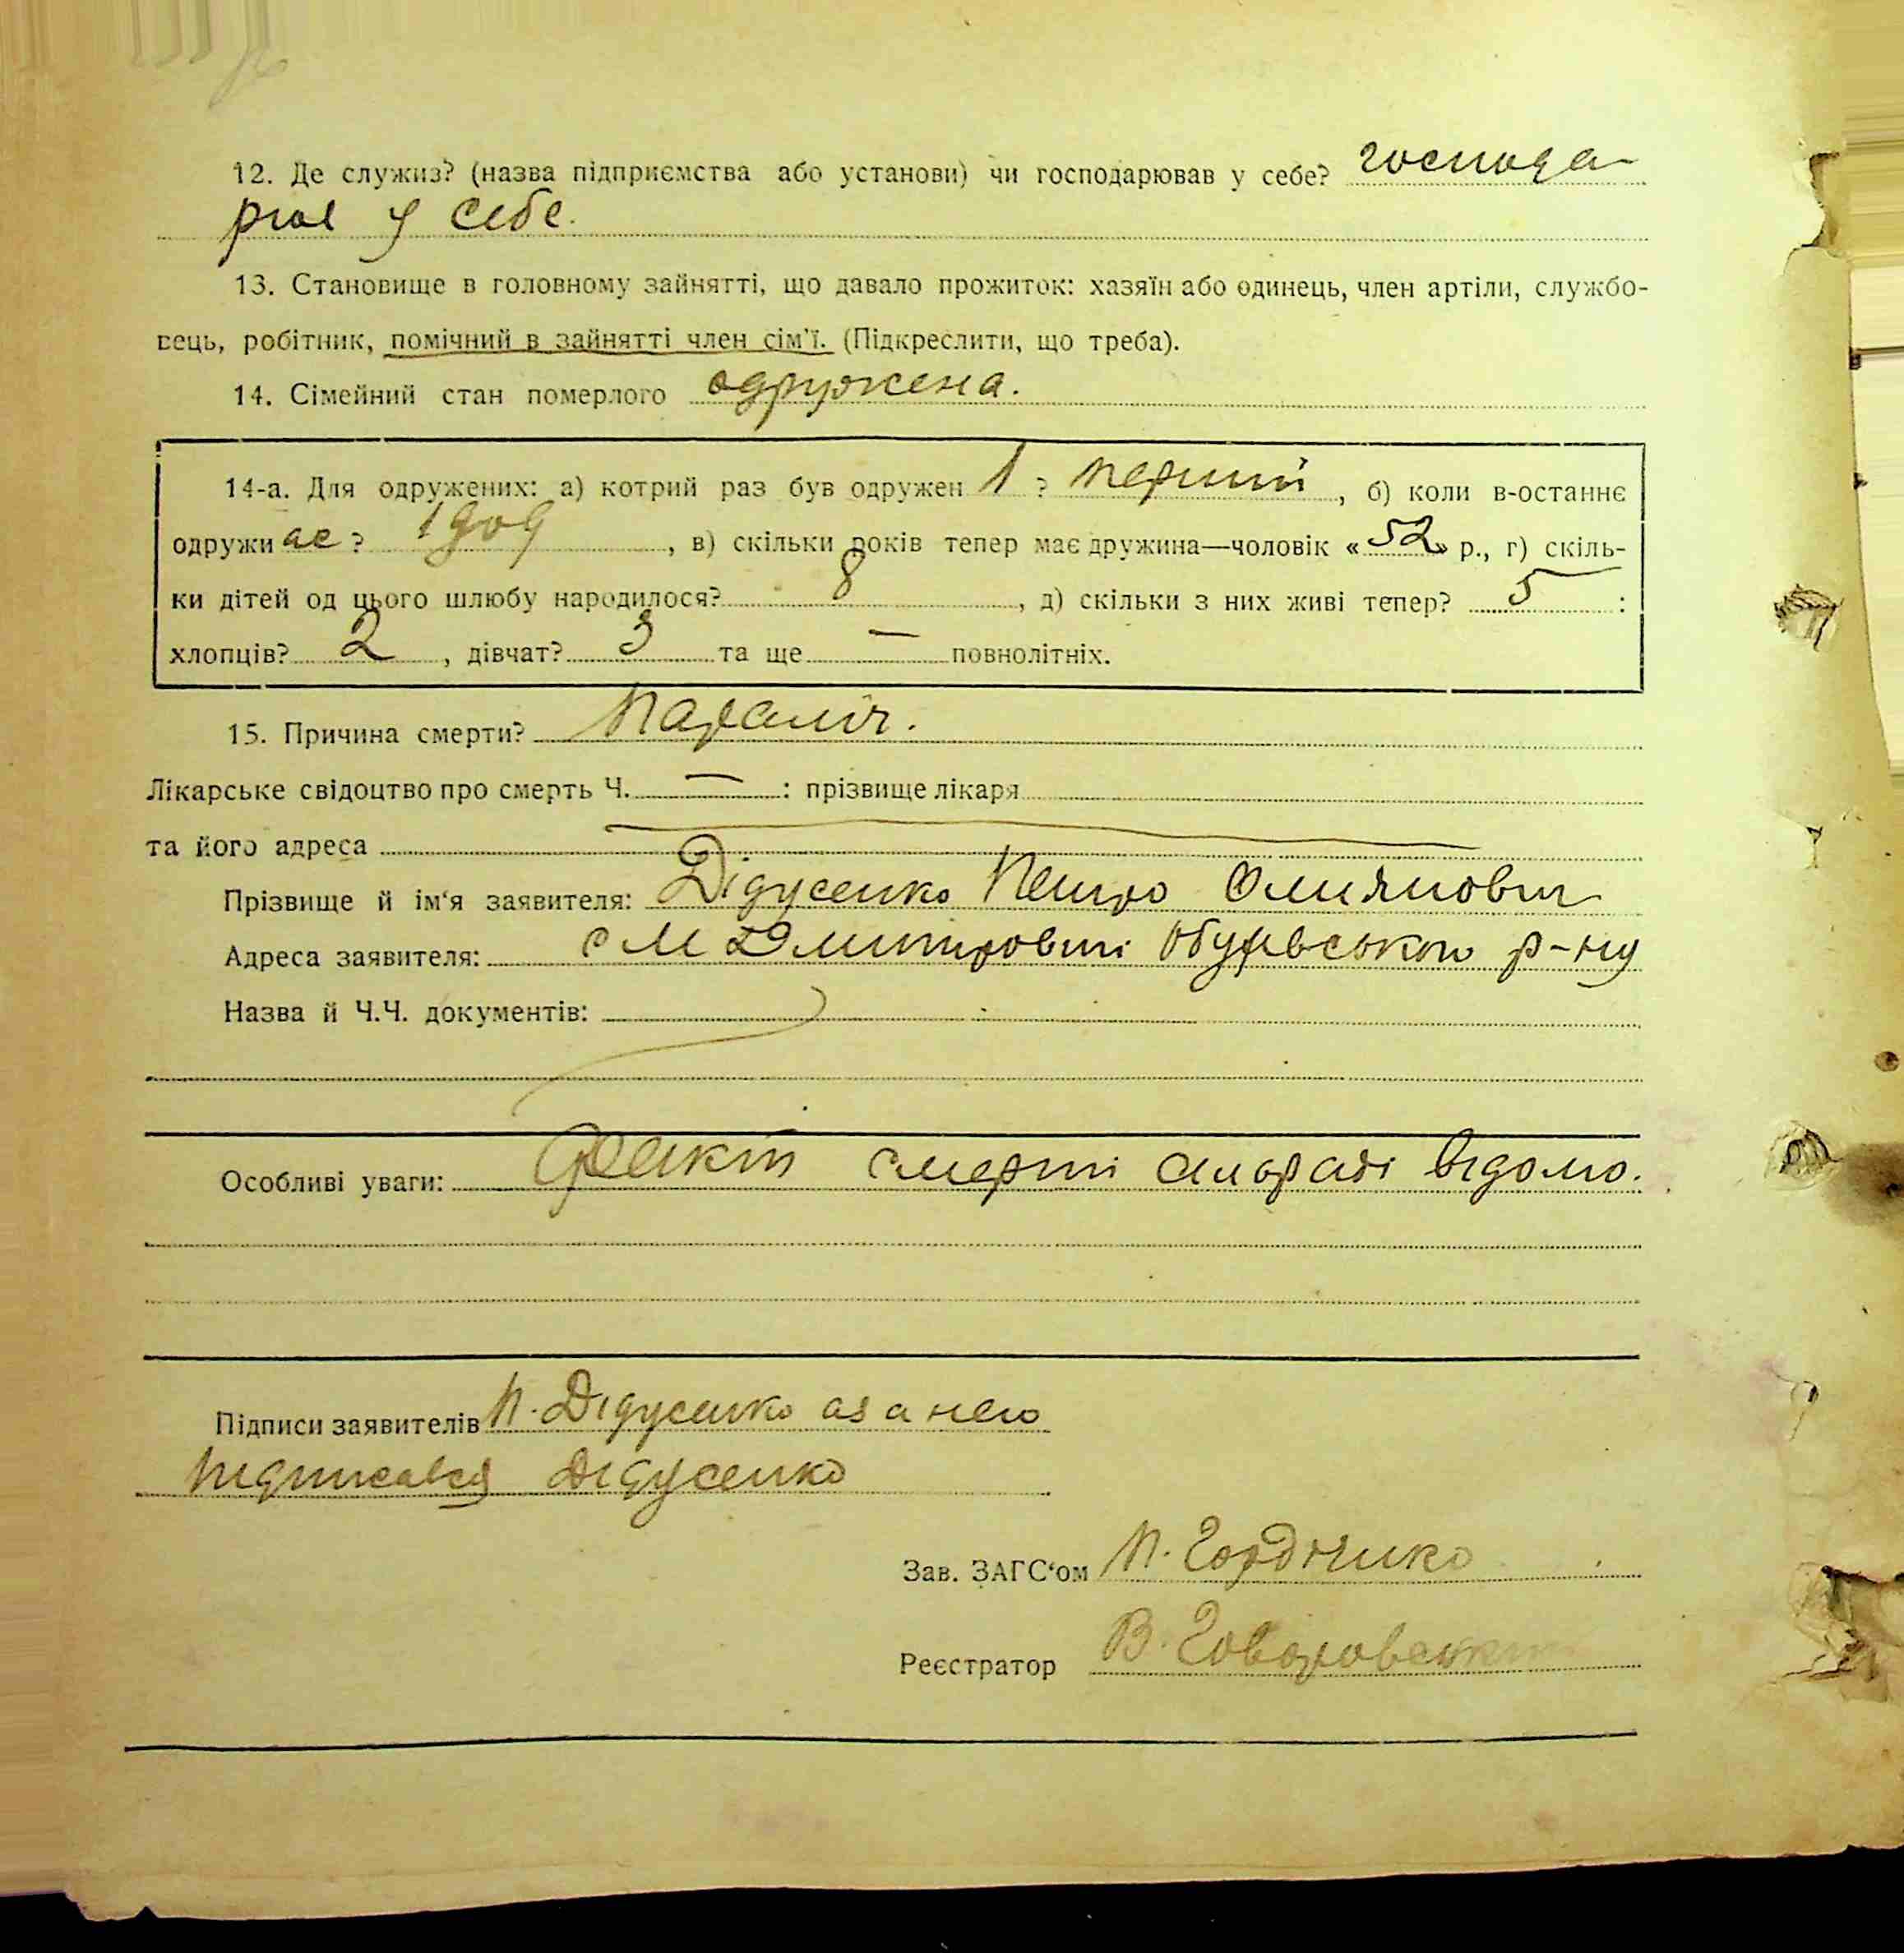 12. Де служив? (назва підприємства або установи) чи господарював у себе? господа-
рює у себе.
13. Становище в головному зайнятті, що давало прожиток: хазяїн або одинець, член артіли, службо-
вець, робітник, помічний в зайнятті член сім'ї. (Підкреслити, що треба).
14. Сімейний стан померлого одружена.
14-а. Для одружених: а) котрий раз був одружен 1 ? перший, б) коли в-останнє
одружи ас? 1909, в) скільки років тепер має дружина—чоловік «52» р., г) скіль-
ки дітей од цього шлюбу народилося? 8, д) скільки з них живі тепер? 5 :
хлопців? 2, дівчат? 3 та ще — повнолітніх.
15. Причина смерти? Параліч.
Лікарське свідоцтво про смерть Ч. — : прізвище лікаря
та його адреса —
Прізвище й ім'я заявителя: Дідусенко Петро Омелянович
Адреса заявителя: с М Дмитровичі Обухівського р-ну
Назва й Ч.Ч. документів:
Особливі уваги: Факт смерті сільраді відомо.
Підписи заявителів П. Дідусенко а за него
підписався Дідусенко
Зав. ЗАГС'ом П.
Реєстратор В. Говоровський